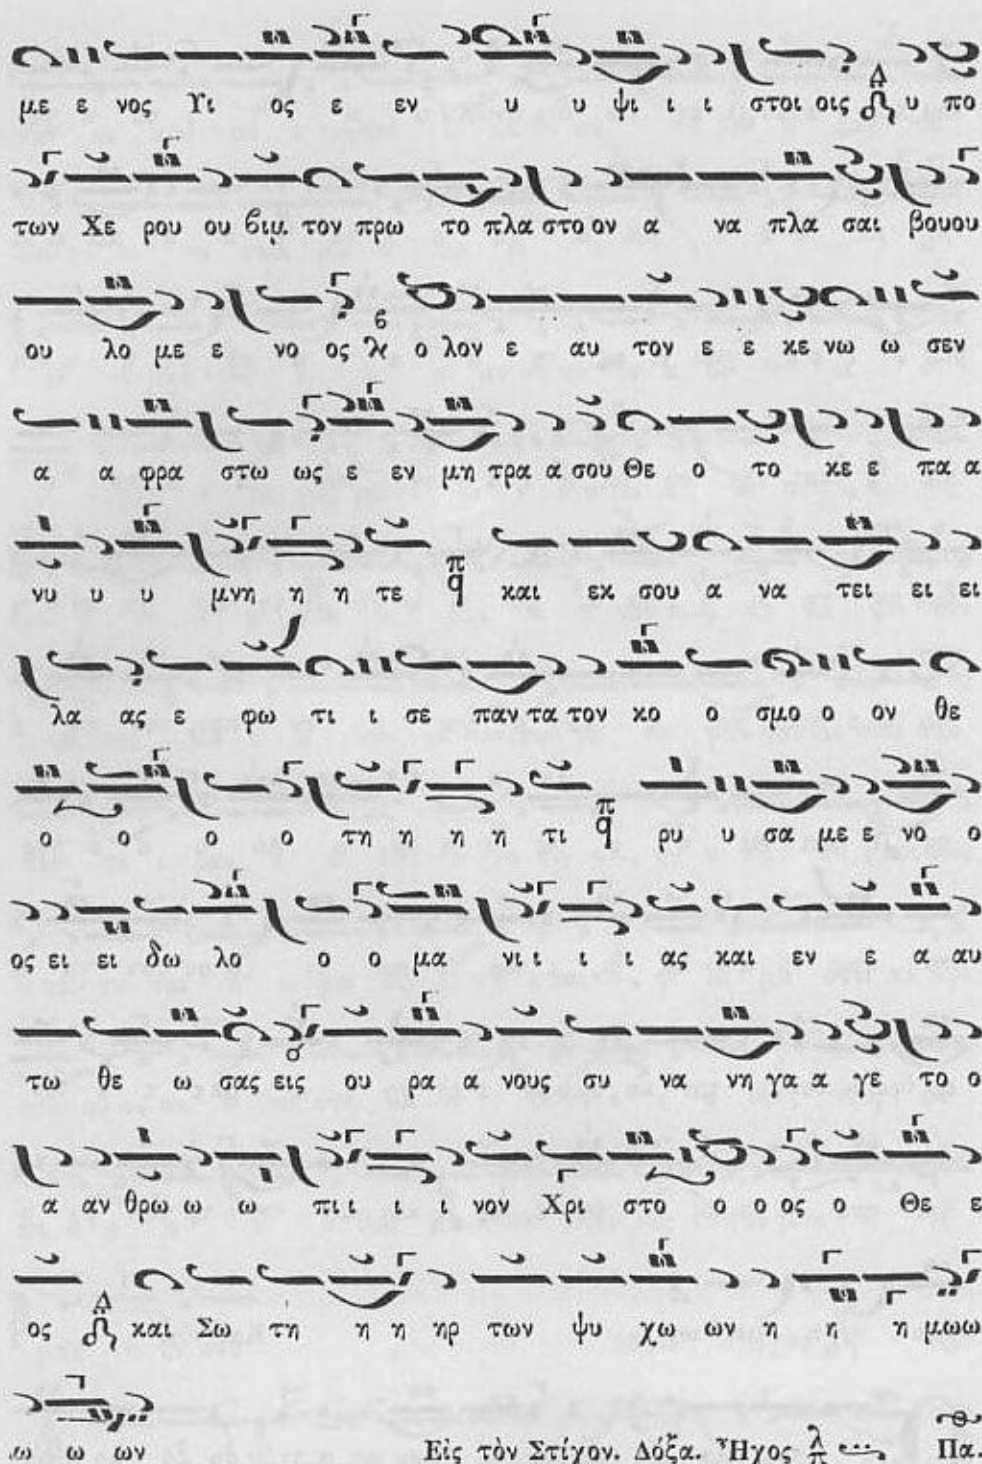 με ε νος Υι ος ε εν υ υ ψι ι ι στοι οις υ πο
των Χε ρου ου βιμ τον πρω το πλα στο ον α να πλα σαι βουου
ου λο με ε νο ος ο λον ε αυ τον ε ε κε νω ω σεν
α α φρα στω ως ε εν μη τρα α σου Θε ο το κε ε πα α
νυ υ υ μνη η η τε π q και εκ σου α να τει ει ει
λα ας ε φω τι ι σε παν τα τον κο ο σμο ο ον θε
ο ο ο ο τη η η η τι π q ρυ υ σα με ε νο ο
ος ει ει δω λο ο ο μα νι ι ι ι ας και εν ε α αυ
τω θε ω σας εις ου ρα α νους συ να νη γα α γε το ο
α αν θρω ω ω πι ι ι ι νον Χρι στο ο ο ος ο Θε ε
ος Δ και Σω τη η η ηρ των ψυ χω ων η η η μωω
ω ω ων Εἰς τὸν Στίχον. Δόξα. Ἦχος λ π Πα.